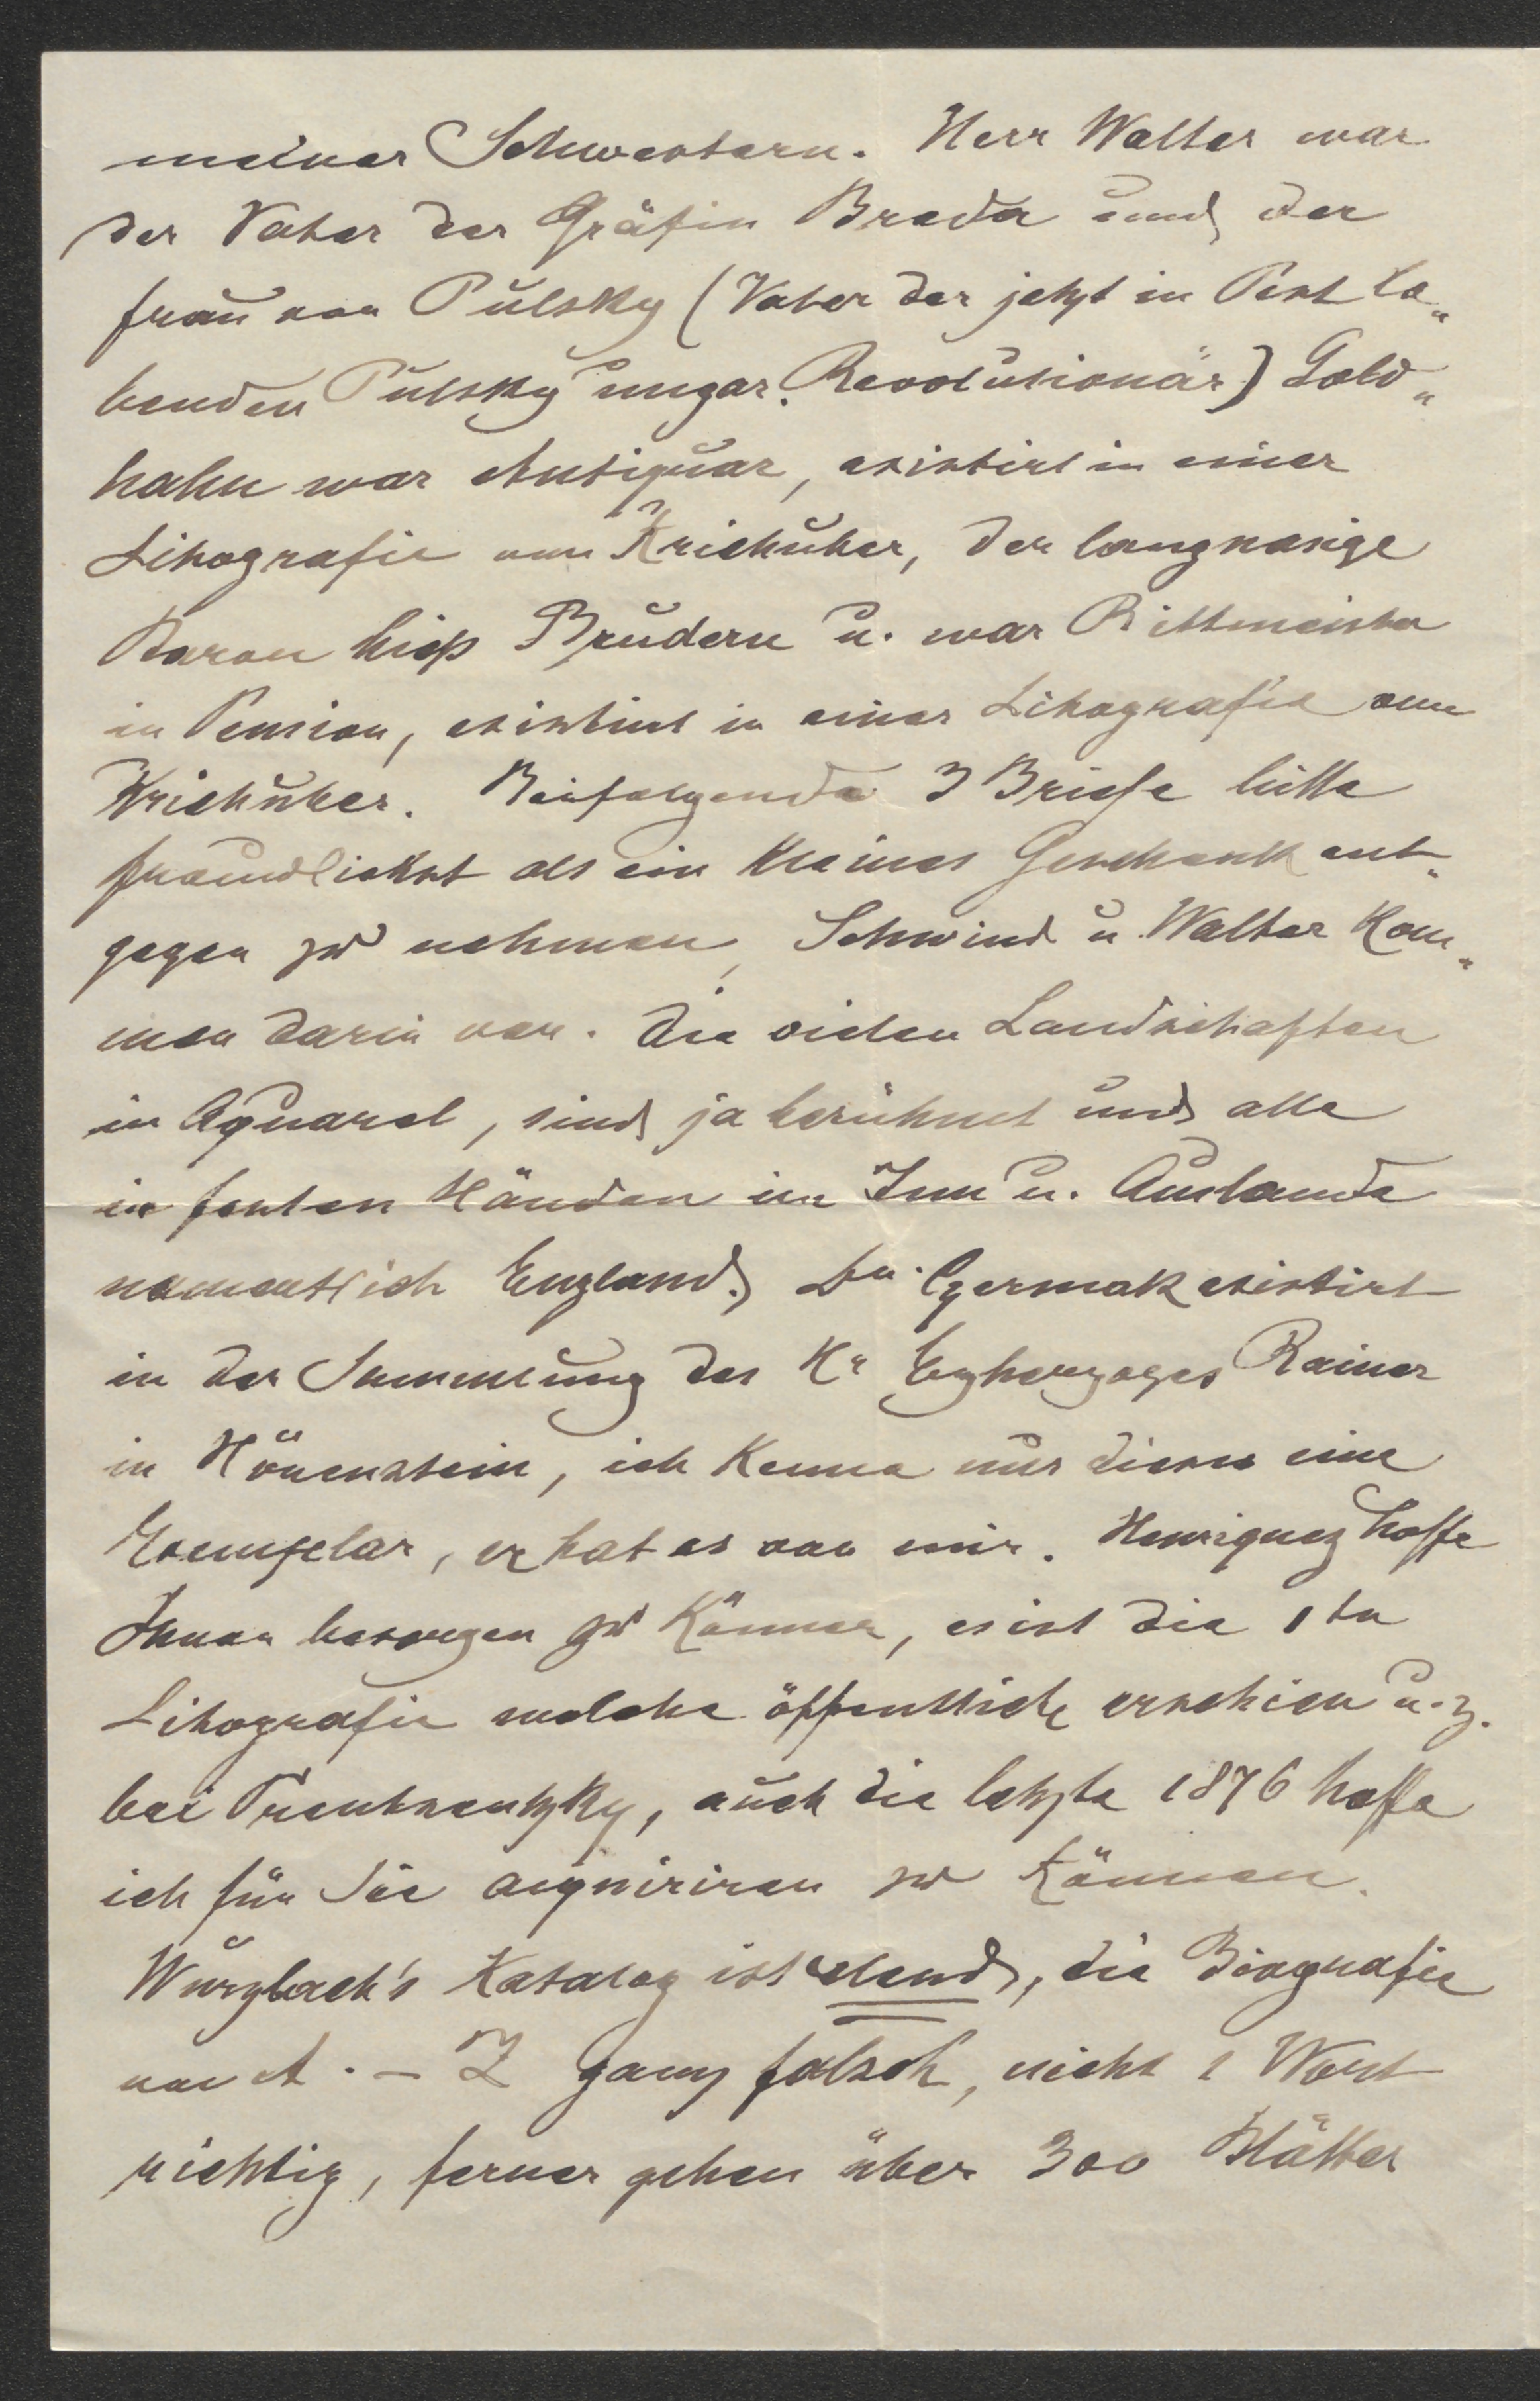 meiner Schwestern. Herr Walter war
der Vater der Gräfin Breda und der
Frau von Pulsky (Vater der jetzt in Pest le„
benden Pulsky ungar. Revolutionär) Gold„
hahn war Antiquar, existirt in einer
Litografie von Kriehuber, der langnasige
Baron hieß Brudern u. war Rittmeister
in Pension, existirt in einer Litografie von
Kriehuber. Beifolgende 3 Briefe bitte
freundlichst als ein kleines Geschenk ent„
gegen zu nehmen, Schwind u Walter kom„
men darin vor. Die vielen Landschaften
in Aquarel, sind ja berühmt und alle
in festen Händen im Inn u. Auslande
namentlich England. Dr. Czermak existirt
in der Sammlung des Hr Erzherzoges Rainer
in Hörnstein, ich kenne nur dieses eine
Exemplar, er hat es von mir. Henriquez hoffe
Ihnen besorgen zu können, es ist die 1te
Litografie welche öffentlich erschien u. z.
bei Trentsentzky, auch die letzte 1876 hoffe
ich für Sie aquiriren zu können.
Wurzbach's Katalog ist elend, die Biografie
von A. – Z ganz falsch, nicht 1 Wort
richtig, ferner gehen über 300 Blätter